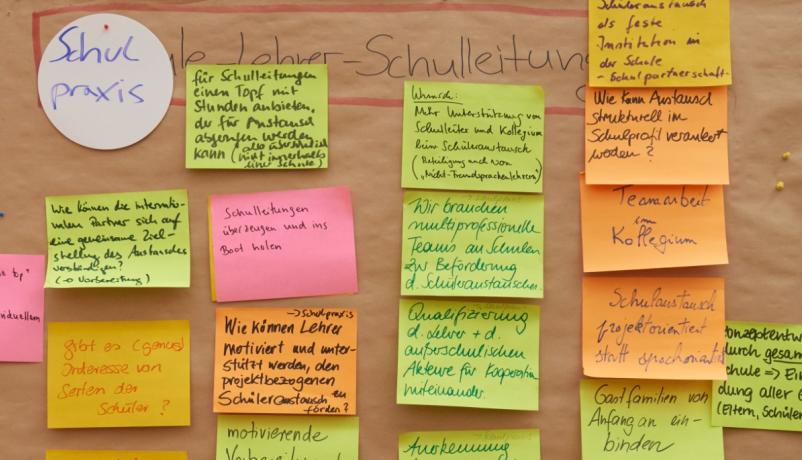 Schul
praxis
Lehrer-Schulleitung
für Schulleitungen
einen Topf mit
Stunden anbieten,
der für Austausch
abgerufen werden
kann (also
nicht innerhalb
einer Schule)
Wie können die internatio-
nalen Partner sich auf
eine gemeinsame Ziel-
stellung des Austausches
verständigen?
(→ Vorbereitung)
top"
viduellem
gibt es (genug)
Interesse von
Seiten der
Schüler ?
Schulleitungen
überzeugen und ins
Boot holen
→ Schulpraxis
Wie können Lehrer
motiviert und unter-
stützt werden, den
projektbezogenen
Schüleraustausch
fördern?
motivierende
Wunsch:
Mehr Unterstützung von
Schulleiter und Kollegium
beim Schüleraustausch
(Beteiligung auch von
"Nicht-Fremdsprachenlehrern")
Wir brauchen
multiprofessionelle
Teams an Schulen
zur Beförderung
d. Schüleraustausches
Qualifizierung
d. Lehrer + d.
außerschulischen
Akteure für Kooperation
miteinander.
Anerkennung
Schüleraustausch
als feste
Institution in
der Schule
- Schulpartnerschaft
Wie kann Austausch
strukturell im
Schulprofil verankert
werden ?
Teamarbeit
im
Kollegium
Schulaustausch
projektorientiert
statt sprachorientiert
Gastfamilien von
Anfang an ein-
binden
Konzeptentw
durch gesam
Schule => Ein
dung aller
(Eltern, Schüler